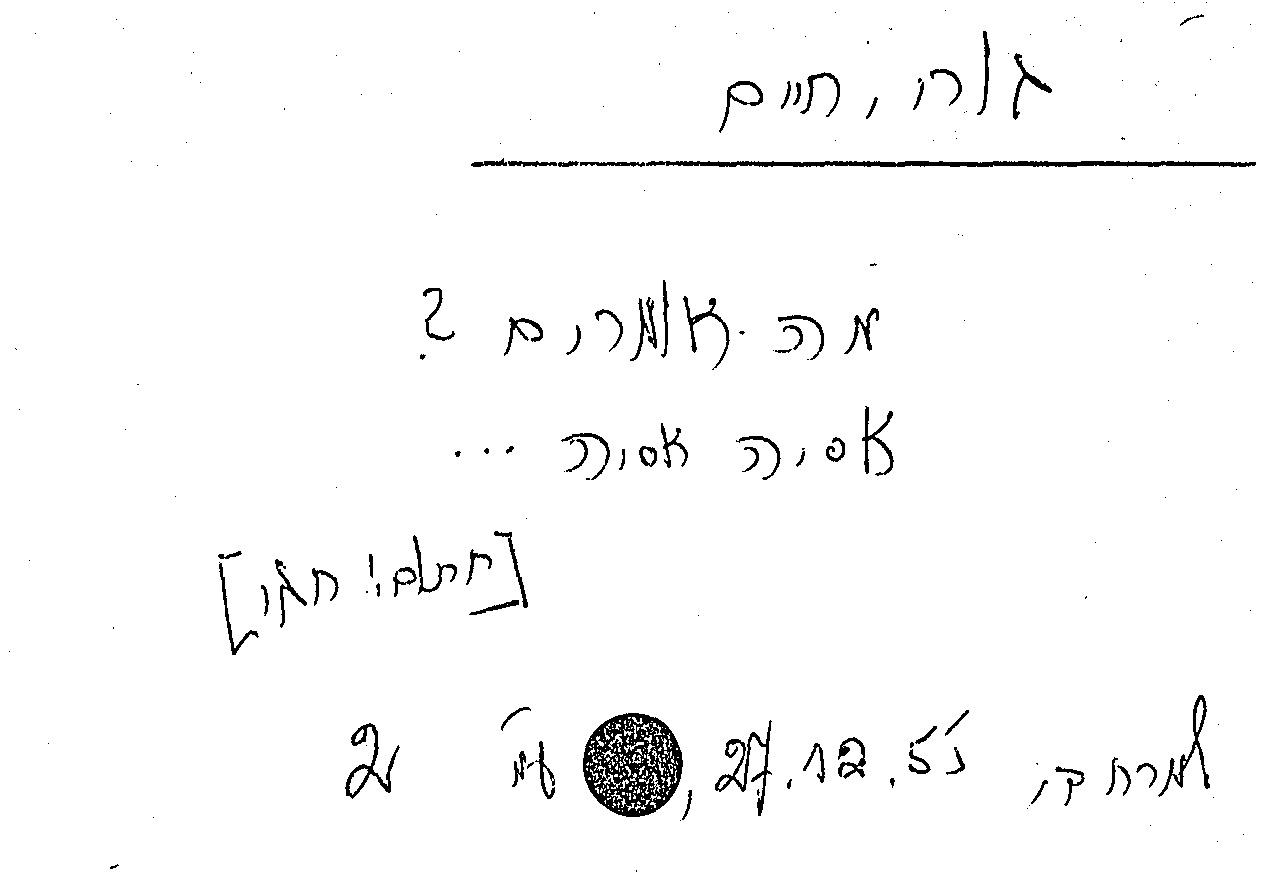 גורי, חיים
מה אומרים ?
אסיה אסיה ...
[חתום: חגי]
למרחב, 27.12.55, עמ' 2